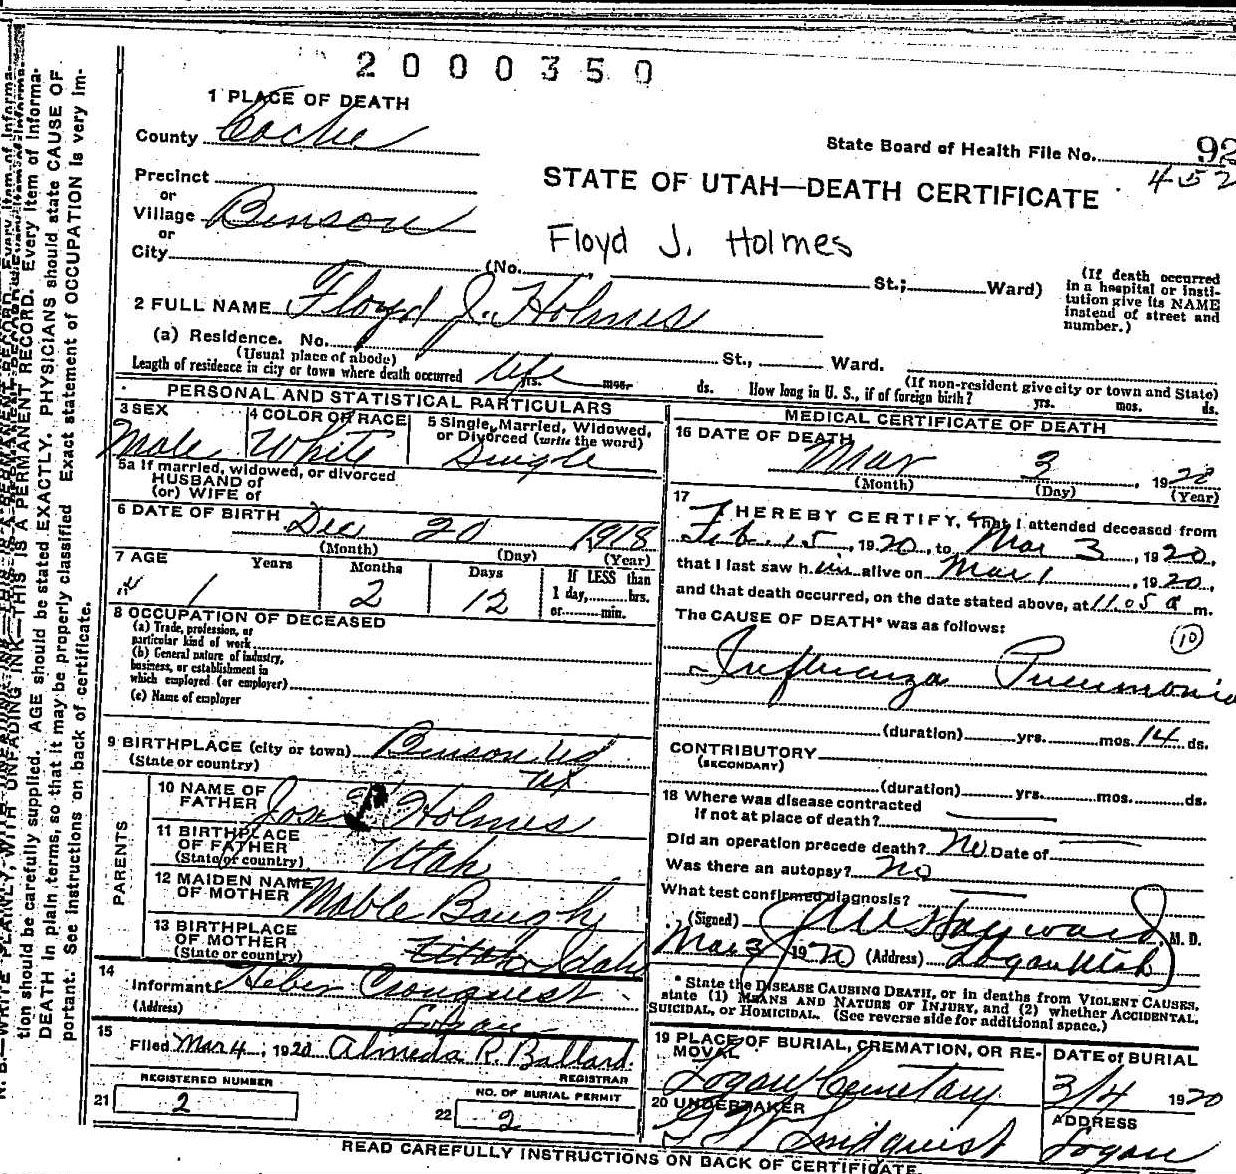 2000350
1 PLACE OF DEATH
County Cache
State Board of Health File No. 92
452
Precinct
or
Village Binson
or
City
STATE OF UTAH—DEATH CERTIFICATE
Floyd J. Holmes
(No. St.; Ward)
(If death occurred
in a hospital or insti-
tution give its NAME
instead of street and
number.)
2 FULL NAME Floyd J. Holmes
(a) Residence. No. St., Ward.
(Usual place of abode)
(If non-resident give city or town and State)
Length of residence in city or town where death occurred life yrs. mos. ds. How long in U. S., if of foreign birth? yrs. mos. ds.
PERSONAL AND STATISTICAL PARTICULARS
3 SEX
Male
4 COLOR OR RACE
White
5 Single, Married, Widowed,
or Divorced (write the word)
Single
5a If married, widowed, or divorced
HUSBAND of
(or) WIFE of
6 DATE OF BIRTH Dec 20 1918
(Month) (Day) (Year)
7 AGE Years Months Days
1 2 12
If LESS than
1 day, hrs.
or min.
8 OCCUPATION OF DECEASED
(a) Trade, profession, or
particular kind of work
(b) General nature of industry,
business, or establishment in
which employed (or employer)
(c) Name of employer
9 BIRTHPLACE (city or town) Binson
(State or country)
PARENTS
10 NAME OF
FATHER Holmes
11 BIRTHPLACE
OF FATHER
(State or country) Utah
12 MAIDEN NAME
OF MOTHER Mable Baugh
13 BIRTHPLACE
OF MOTHER
(State or country) Utah Idaho
14
Informant Heber Cronquist
(Address) Logan
15
Filed Mar 4, 1920 Almeda R. Ballard
REGISTRAR
REGISTERED NUMBER
21 2
NO. OF BURIAL PERMIT
22 2
MEDICAL CERTIFICATE OF DEATH
16 DATE OF DEATH
Mar 3, 1920
(Month) (Day) (Year)
17 I HEREBY CERTIFY, That I attended deceased from
Feb. 15, 1920, to Mar 3, 1920,
that I last saw him alive on Mar 1, 1920,
and that death occurred, on the date stated above, at 11.05 a m.
The CAUSE OF DEATH* was as follows:
10
Influenza Pneumonia
(duration) yrs. mos. 14 ds.
CONTRIBUTORY
(SECONDARY)
(duration) yrs. mos. ds.
18 Where was disease contracted
if not at place of death?
Did an operation precede death? No Date of
Was there an autopsy? No
What test confirmed diagnosis?
(Signed) Hayward, M. D.
Mar 3, 1920 (Address) Logan Utah
* State the DISEASE CAUSING DEATH, or in deaths from VIOLENT CAUSES,
state (1) MEANS AND NATURE OF INJURY, and (2) whether ACCIDENTAL,
SUICIDAL, or HOMICIDAL. (See reverse side for additional space.)
19 PLACE OF BURIAL, CREMATION, OR RE-
MOVAL
Logan Cemetary
DATE of BURIAL
3/4 1920
20 UNDERTAKER
Lindquist
ADDRESS
Logan
READ CAREFULLY INSTRUCTIONS ON BACK OF CERTIFICATE.
N. B.—WRITE PLAINLY, WITH UNFADING INK—THIS IS A PERMANENT RECORD. Every item of informa-
tion should be carefully supplied. AGE should be stated EXACTLY. PHYSICIANS should state CAUSE OF
DEATH in plain terms, so that it may be properly classified. Exact statement of OCCUPATION is very im-
portant. See instructions on back of certificate.